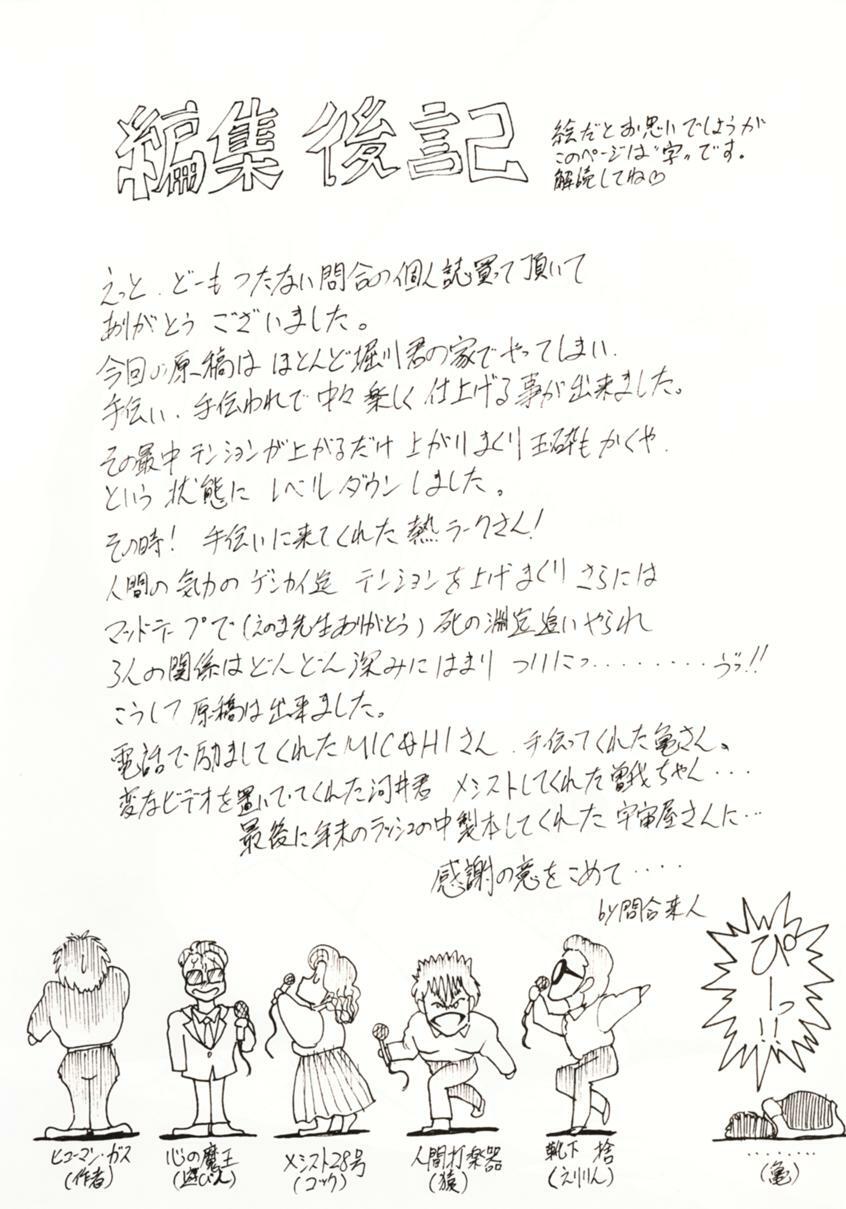 編集後記
絵だとお思いでしょうが
このページは"字"です。
解読してね♡
えっと、どーもつたない問合の個人誌買って頂いて
ありがとうございました。
今回の原稿はほとんど堀川君の家でやってしまい、
手伝い、手伝われで中々楽しく仕上げる事が出来ました。
その最中テンションが上がるだけ上がりまくり玉砕もかくや、
という状態にレベルダウンしました。
その時！手伝いに来てくれた熱ラークさん！
人間の気力のゲンカイ迄テンションを上げまくりさらには
マッドテープで(えのま先生ありがとう)死の淵迄追いやられ
3人の関係はどんどん深みにはまりついにっ‥‥‥‥‥うっ!!
こうして原稿は出来ました。
電話で励ましてくれたMICHIさん、手伝ってくれた亀さん、
変なビデオを置いてってくれた河井君 メシストしてくれた曽我ちゃん‥‥
最後に年末のラッシュの中製本してくれた宇宙屋さんに‥‥
感謝の意をこめて‥‥‥
by問合来人
ぴーっ!!
ヒューマン・ガス
(作者)
心の魔王
(遊びん)
メシスト28号
(コック)
人間打楽器
(猿)
靴下 捨
(えりりん)
‥‥‥‥
(亀)